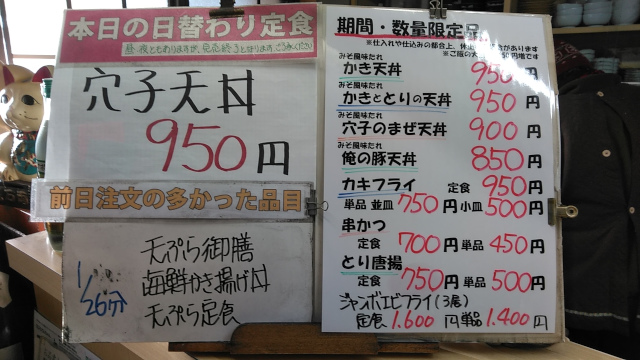 本日の日替わり定食
穴子天丼
950円
前日注文の多かった品目
1/26分
天ぷら御膳
海鮮かき揚げ丼
天ぷら定食
期間・数量限定品
みそ風味たれ
かき天丼 950円
みそ風味たれ
かきととりの天丼 950円
みそ風味たれ
穴子のまぜ天丼 900円
みそ風味たれ
俺の豚天丼 850円
カキフライ 定食 950円
単品 並皿 750円 小皿 500円
串かつ
定食 700円 単品 450円
とり唐揚
定食 750円 単品 500円
ジャンボエビフライ(3尾)
定食 1.600円 単品 1.400円